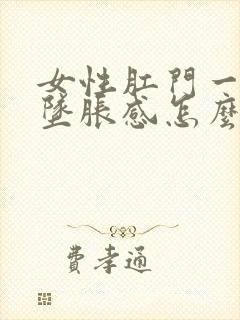 女性肛門一
墜脹感怎麼
費孝通